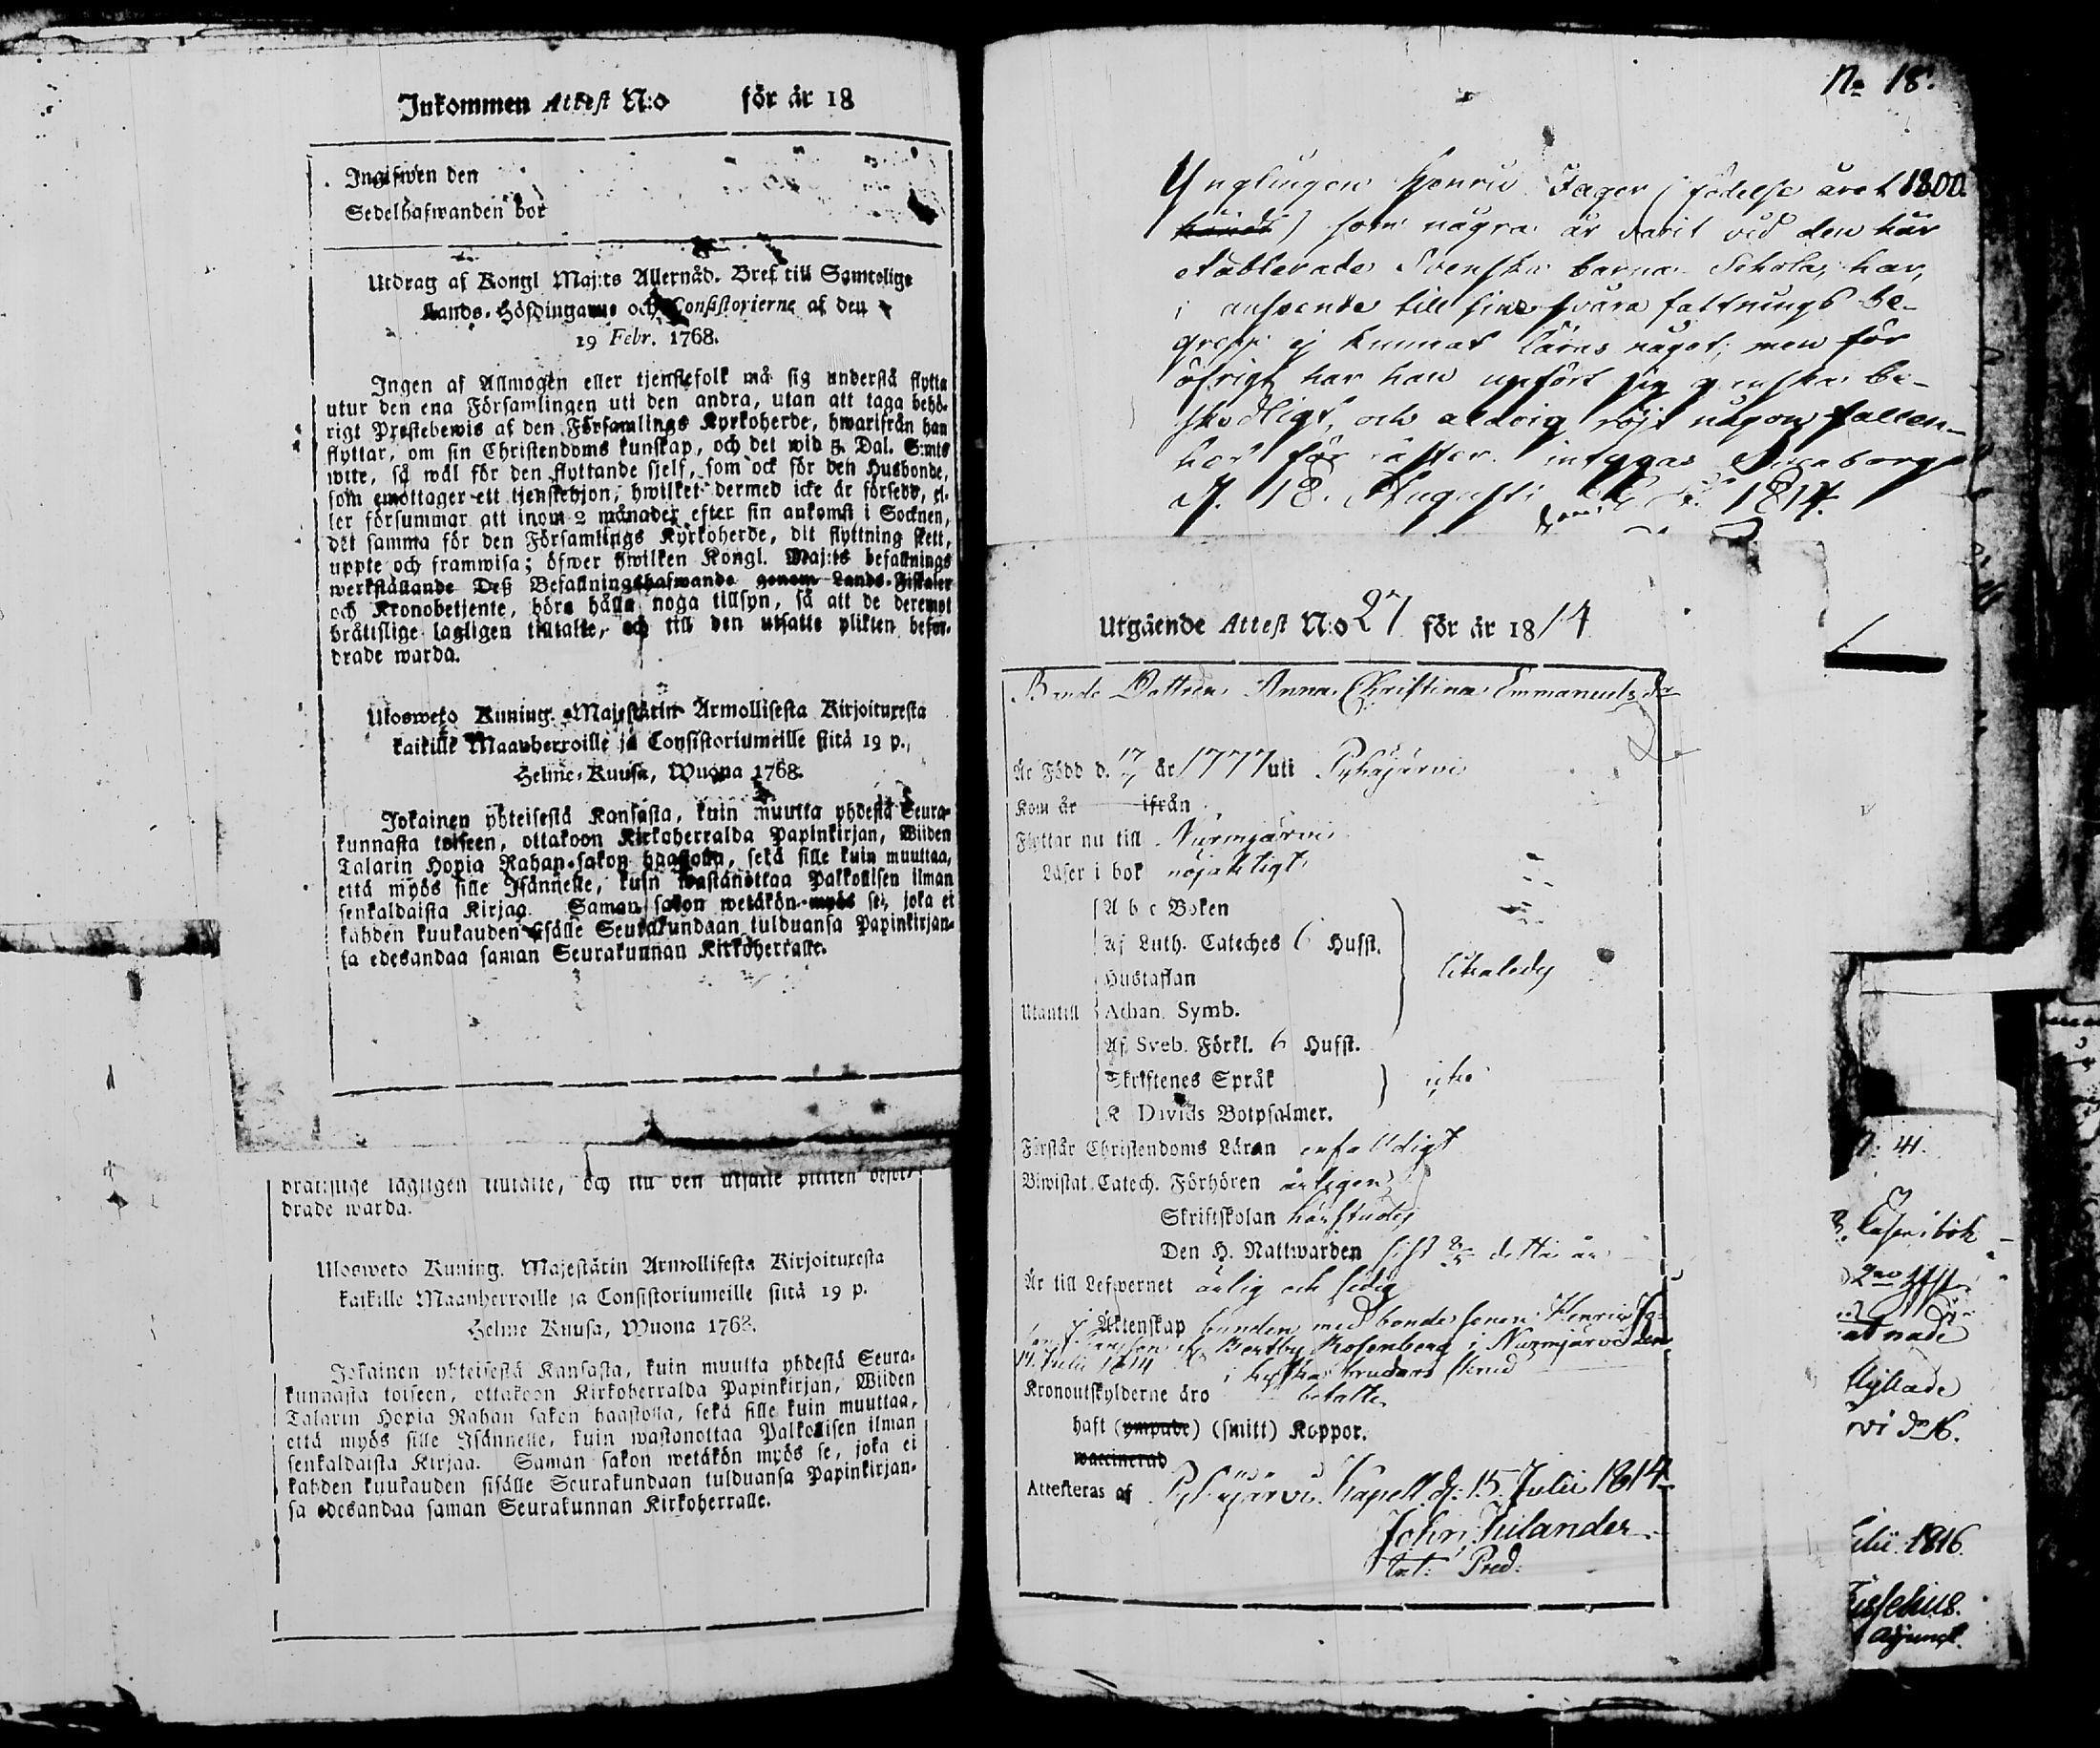 Inkommen Attest N:o för år 18
Ingifwen den
Sedelhafwanden bor
Utdrag af Kongl Maj:ts Allernåd. Bref till Samtelige
Lands-Höfdingarne och Consistorierne af den
19 Febr. 1768.
Ingen af Allmogen eller tjenstefolk må sig understå flytta
utur den ena Församlingen uti den andra, utan att taga behö-
rigt Prestebewis af den Församlings Kyrkoherde, hwarifrån han
flyttar, om sin Christendoms kunskap, och det wid 5. Dal. S:mts
wite, så wäl för den flyttande sjelf, som ock för den Husbonde,
som emottager ett tjenstehjon, hwilket dermed icke är försedd, el-
ler försummar att inom 2 månader efter sin ankomst i Socknen,
det samma för den Församlings Kyrkoherde, dit flyttning skett,
uppte och framwisa; öfwer hwilken Kongl. Maj:ts befallnings
werkställande Deß Befallningshafwande genom Lands-Fiskaler
och Kronobetjente, böra hålla noga tillsyn, så att de deremot
bråttslige lagligen tilltalte, och till den utsatte plikten befor-
drade warda.
Ulosweto Kuning. Majestätin Armollisesta Kirjoituxesta
kaikille Maanherroille ja Consistoriumeille siitä 19 p.,
Helme-Kuusa, Wuona 1768.
Jokainen yhteisestä Kansasta, kuin muutta yhdestä Seura-
kunnasta toiseen, ottakoon Kirkoherralda Papinkirjan, Wiiden
Talarin Hopia Rahan-sakon haastolla, sekä sille kuin muuttaa,
että myös sille Isännelle, kuin wastanottaa Palkollisen ilman
senkaldaista Kirjaa. Saman sakon wetäkön myös se, joka ei
kahden kuukauden sisälle Seurakundaan tulduansa Papinkirjan-
sa edesandaa saman Seurakunnan Kirkoherralle.
bråttslige lagligen tilltalte, och till den utsatte plikten befor-
drade warda.
Ulosweto Kuning. Majestätin Armollisesta Kirjoituxesta
kaikille Maanherroille ja Consistoriumeille siitä 19 p.
Helme Kuusa, Wuona 1768.
Jokainen yhteisestä Kansasta, kuin muutta yhdestä Seura-
kunnasta toiseen, ottakoon Kirkoherralda Papinkirjan, Wiiden
Talarin Hopia Rahan sakon haastolla, sekä sille kuin muuttaa,
että myös sille Isännelle, kuin wastanottaa Palkollisen ilman
senkaldaista Kirjaa. Saman sakon wetäkön myös se, joka ei
kahden kuukauden sisälle Seurakundaan tulduansa Papinkirjan-
sa edesandaa saman Seurakunnan Kirkoherralle.
No 18.
Ynglingen Henric Fager (födelse året 1800.
) som några år varit vid den här
etablerade Svenska barna Schola, har,
i anseende till sine svåra fattnings be-
grepp ej kunnat läras något; men för
öfrigt har han upfört sig ganska be-
skedligt, och aldrig röjt någon fallen-
het för laster. intygas Sveaborg
d. 18. Augusti 1814.
Utgående Attest N:o 27 för år 1814
Bonde Dottren Anna Christina Emmanuels dr
Är Född d. 17/7 år 1777 uti Pyhäjärvi
Kom år ifrån
Flyttar nu till Nurmijärvi
Läser i bok nöjaktigt
Utantill
A b c Boken
Af Luth. Cateches 6 Hufst.
Hustaflan
Athan. Symb.
Af Sveb. Förkl. 6 Hufst.
Skriftenes Språk icke
K Davids Botpsalmer.
Förstår Christendoms Läran enfalldigt
Biwistat Catech. Förhören årligen
Skriftskolan härstädes
Den H. Nattwarden sist detta år
Är till Lefwernet ärlig och sedig
Äktenskap bunden med bonde sonen Henric
Rosenberg i Nurmijärvi den
14. Julii 1814 i kyrko brudars skrud
Kronoutskylderne äro betalte
haft (ympade) (smitt) Koppor.
waccinerad
Attesteras af Pyhäjärvi Kapell d: 15. Julii 1814.
Joh:n Julander
Pred:
N: 41.
Läser i bok
Julii 1816.
Adjunct.